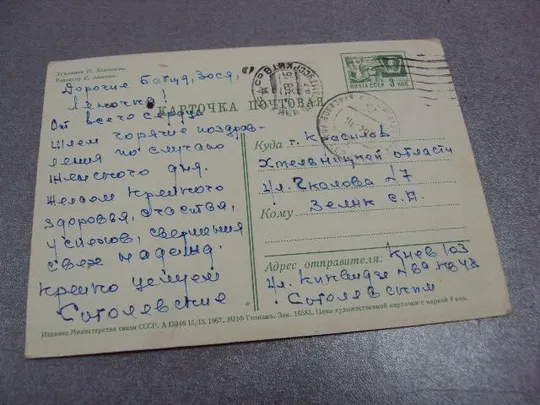 Художник П.
Редактор
Дорогие Багид, Зося,
Леночка!
КАРТОЧКА ПОЧТОВАЯ
ПОЧТА СССР 3 КОП
От всего сердца
Шлем горячие поздрав-
ления по случаю
Женского дня.
Желаем крепкого
здоровья, счастья,
успехов, свершения
всех надежд.
Крепко целуем
Соголевские
Куда г. Красилов
Хмельницкой области
ул. Чкалова 27
Кому Зелик С.П.
Адрес отправителя: Киев 103
ул. Киквидзе кв 48
Соголевским
Издание Министерства связи СССР. А 15346 15/IX 1967. МПФ Гознака. Зак. 16583. Цена художественной карточки с маркой 4 коп.